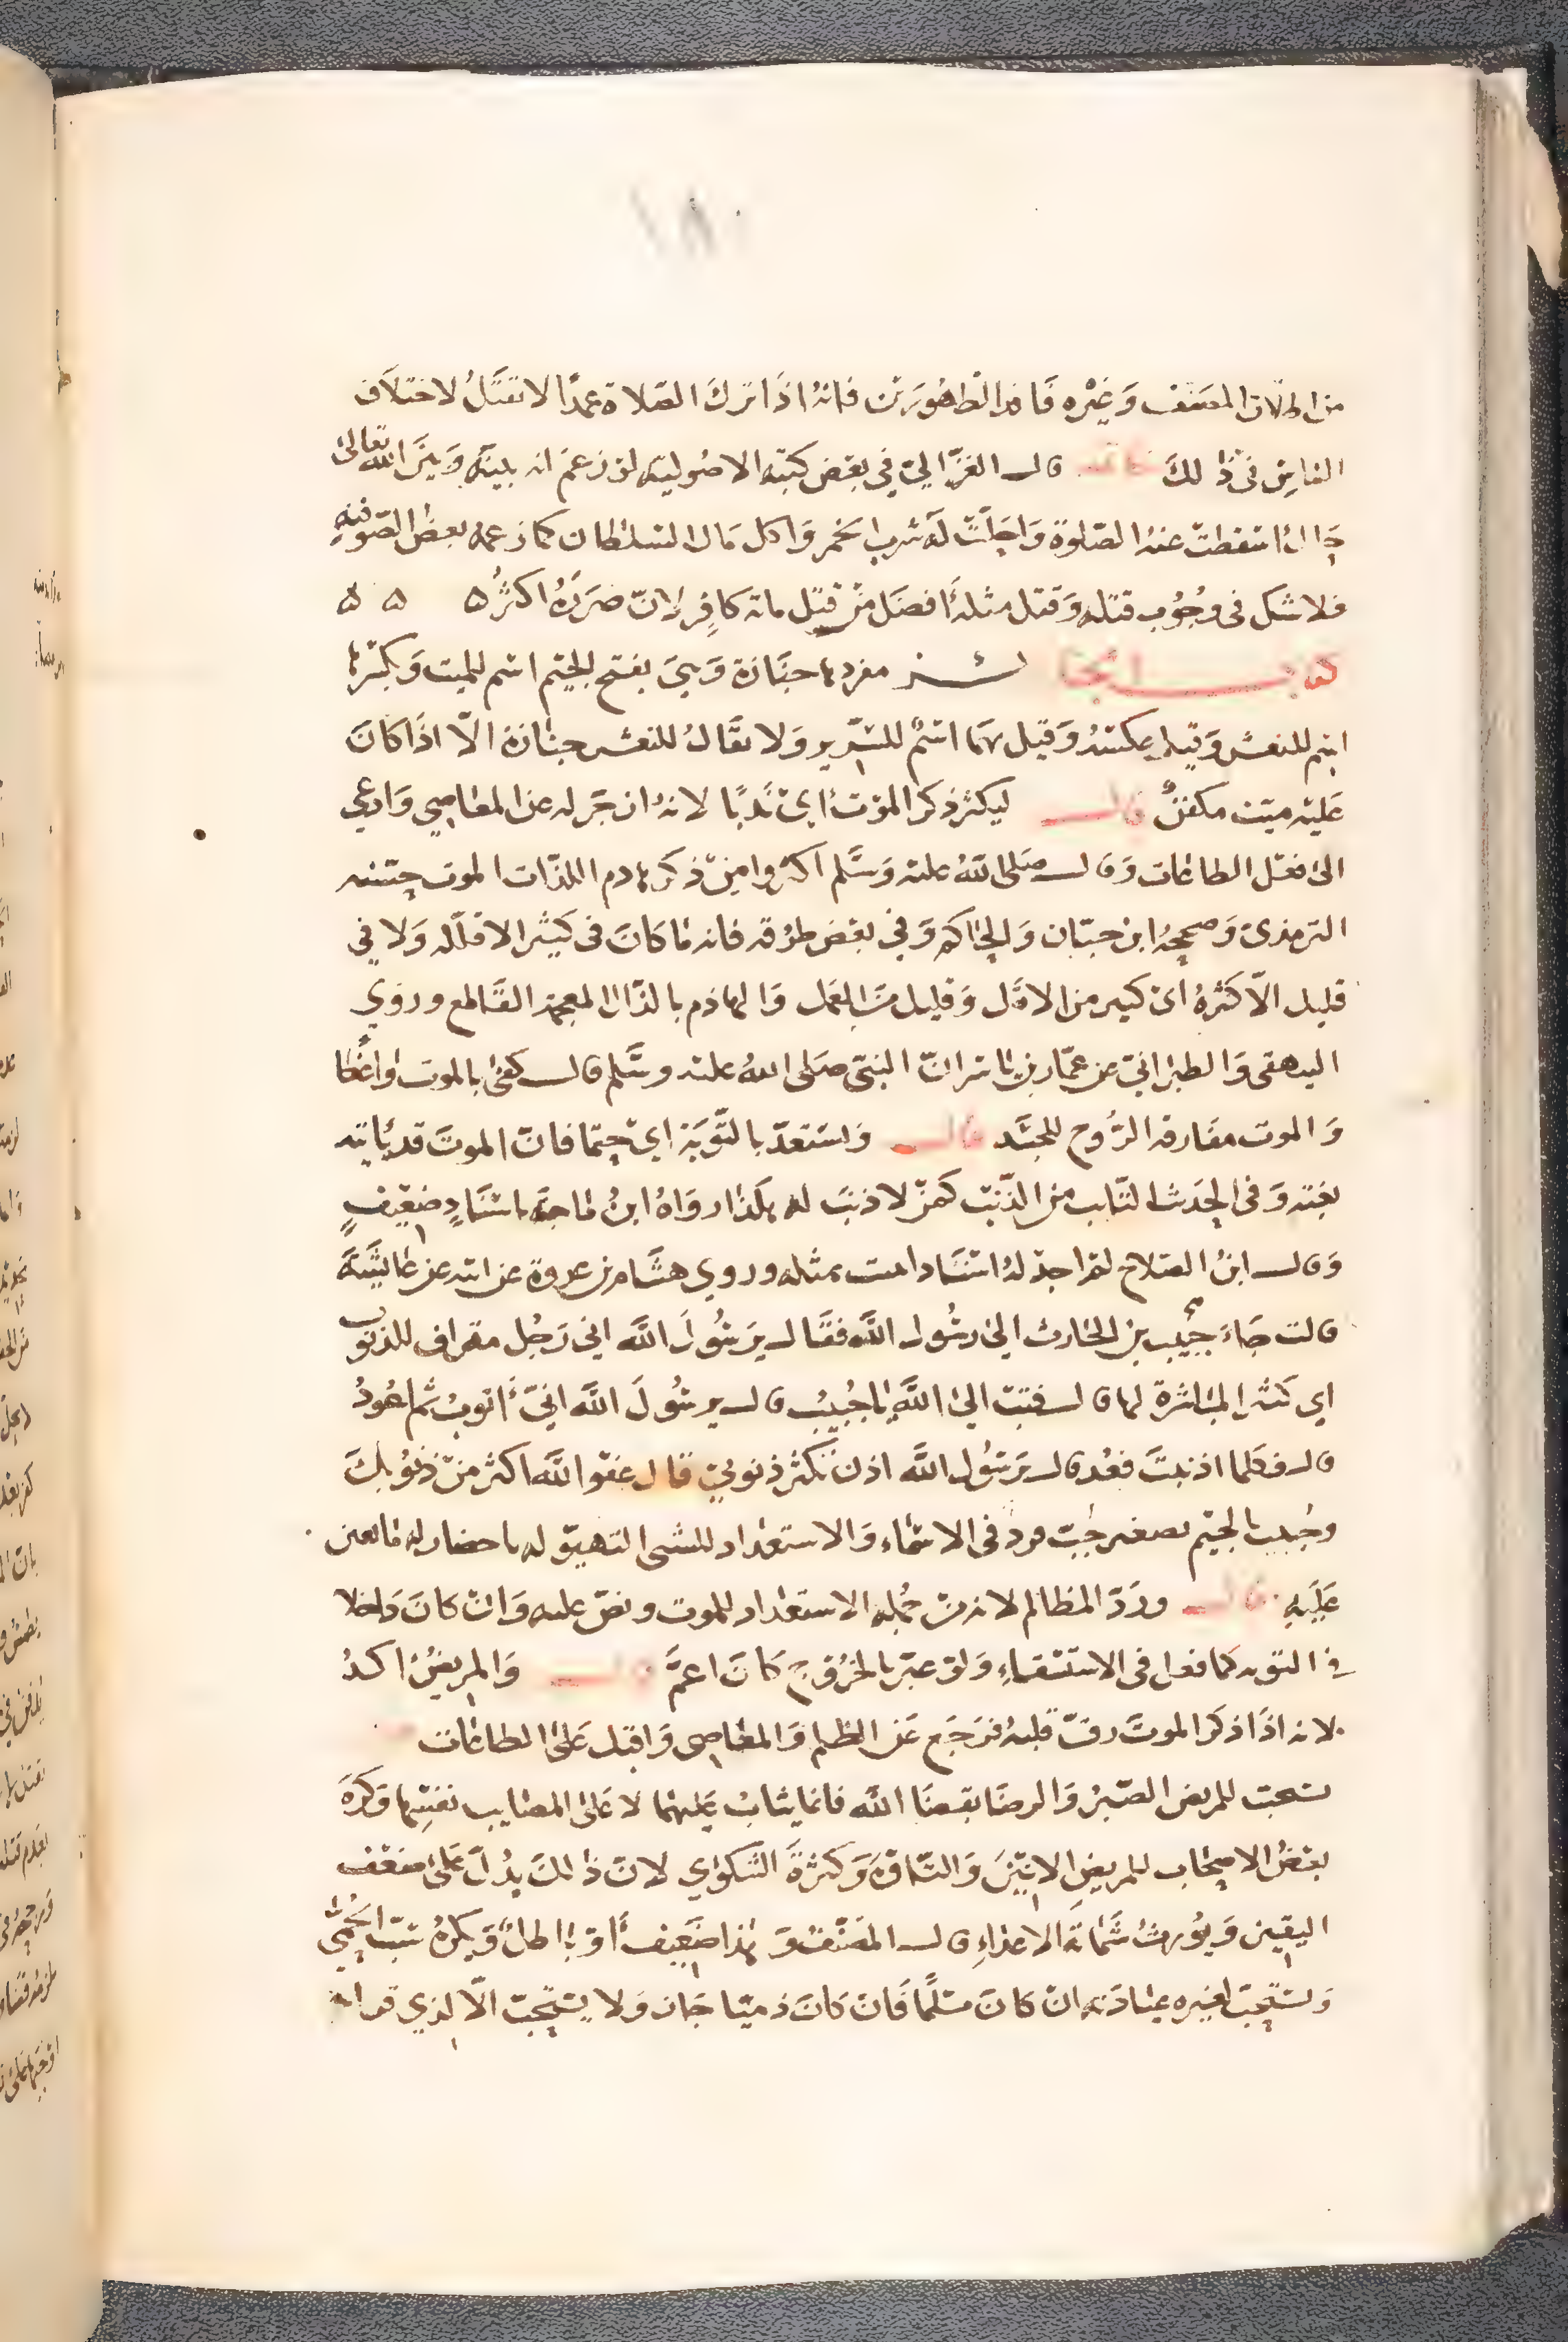 ١٨٠
من اطلاق المصنف وَغيْره فَاقد الطهُورَين فانهُ اذَا ترك الصَلاة عمدًا لا تقتلُ لاختلاف
الناس فى ذٰلكَ قال الغزّالي في بعض كتبه الاصُوليه لو زعمَ ان بينهُ وَبيَن الله تعالى
حَالةً اسقطت عنهُ الصّلوة وَاحَلّت لَهُ شرب الخمر وَاكل مَال السلطان كما زعمه بعض الصّوفيه
فلا شك فى وجُوب قتله وَقتل مثلهُ افضَل منْ قتل مائة كافِر لانّ ضرَرهُ اكثرُ ۵ ۵ ۵
كتاب الجنائز مفردها جنَازة وَهىَ بفتح الجيْم اسْم للميت وَبكسْرها
اسْم للنعش وَقيل بعكسهُ وَقيل هَما اسْمٌ للسَّرير وَلا يقَالُ للنعش جنازة الّا اذَا كانَ
عَليْه ميّت مكفنٌ قال ليكثر ذكر الموْت اىْ نَدبًا لانهُ ازجَر له عن المعَاصِي وَادعي
الىٰ فعْل الطاعَات وَقال صَلى اللهُ عليه وَسَلّم اكثروا منْ ذكر هادم اللذّات الموت حسّنه
الترمذى وَصححهُ ابن حبّان وَالحاكم وَفي بعض طرُقه فانه مَا كانَ فى كثير الا قلّله وَلا في
قليل الّا كثرهُ اىْ كثير من الامَل وَقليل منَ العَمل وَالهاذم بالذّال المعجمه القَاطع وروي
البيهقى وَالطبرَاني عن عمّار بن ياسر انّ النبىّ صَلى اللهُ عليه وسَلّم قال كفىٰ بالموت واعظا
وَالموت مفَارقه الرُّوح للجسَد قال وَيستعدّ بالتّوبَة اىْ حتما فانّ الموتَ قد يَأتيه
بغته وَفى الحدَيث التّايب من الذّنب كمنْ لا ذنبَ له هكذا رَوَاهُ ابنُ مَاجَه باسْنَادٍ ضعِيْفٍ
وَقال ابنُ الصّلاح لمْ اجدْ لهُ اسْنَادا يثبت بمثله وروي هشَام بن عروة عن ابيه عن عَائشَةَ
قالت جَاءَ جُبيب بن الحارث الىٰ رسُول اللَّه فقَال يَرسُولَ اللَّه انى رَجُل مقراف للذنوب
اي كثير المبَاشرة لها قال فتبْ الىٰ اللَّه يَا جُبيبُ قال يرسُولَ اللَّه انىّ اَتوبُ ثم اعُودُ
قال فكلما اذنبتَ فعُد قال يَرسُول اللَّه اذن تكثر ذنوبي قال عفو اللَّه اكثر منْ ذنوبكَ
وجُبيب بالجيْم تصغير جُبّ فردٌ فى الاسْماء وَالاستعْداد للشى التهيؤ له باحضار له مَا يعين
عَليه قال وردّ المظالم لانه منْ جُمله الاستعْداد للموت ونصّ عليه وَانْ كانَ دَاخلا
فى التوبه كما فعل فى الاستسْقاءِ وَلو عبّر بالخرُوج كانَ اعمَّ قال وَالمريضُ اكدُ
لانه اذَا ذكر الموتَ رقّ قلبهُ فرَجَع عَن الظلم وَالمعَاصى وَاقبل عَلىٰ الطاعَات
يستحبّ للمريض الصّبرُ وَالرضَا بقضَا اللَّه فانما يثابُ عَليْهما لا عَلىٰ المصَايب نفسِها وَكرَهَ
بعْضُ الاصحَاب للمريضِ الانيْنَ وَالتّاوّهَ وَكثرَةَ الشكوَي لانّ ذٰلكَ يدُلّ عَلىٰ ضعْف
اليقين وَيُورثُ شَمَاتَة الاعدَاءِ قال المصَنّفُ وَهٰذَا ضَعِيف أَوْ بَاطلٌ وَيكرهُ سَبّ الحُمّىٰ
وَيستحبّ لغيره عيَادَته انْ كانَ مسْلمًا فَانْ كانَ ذميّا جَاز وَلا يسْتحبّ الّا لذي قرابه